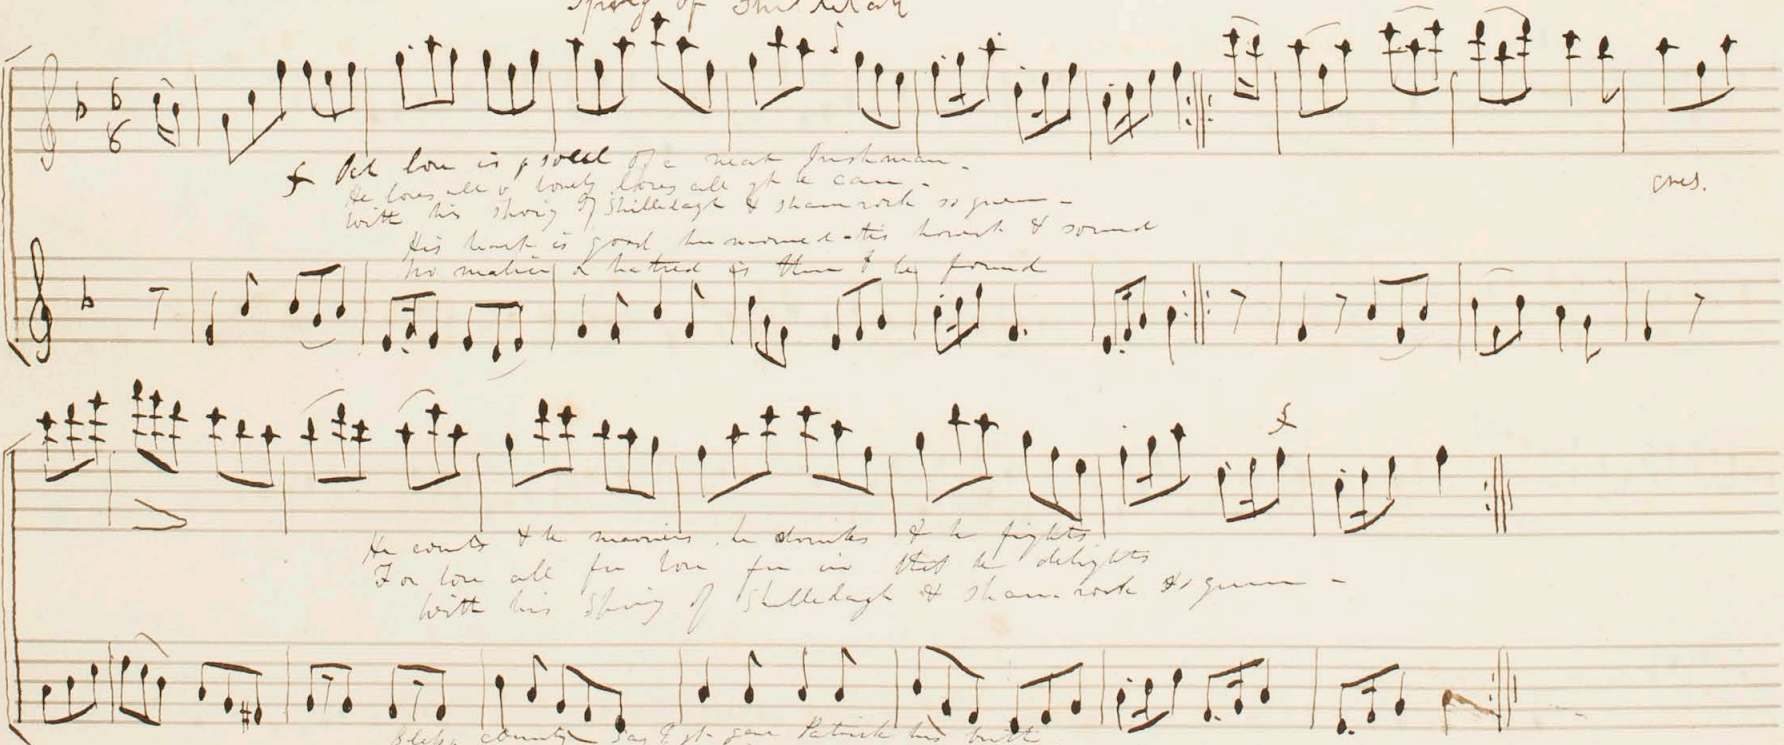 Sprig of Shillelah
love is soul of a neat Irishman
He loves all lovely loves all yt he can
With his sprig of Shillelagh & shamrock so green
His heart is good humoured tis honest & sound
No malice or hatred is there to be found
cres.
He courts & he marries he drinks & he fights
For love all for love for in that he delights
With his Sprig of Shillelagh & shamrock so green
country Say I yt gave Patrick his birth